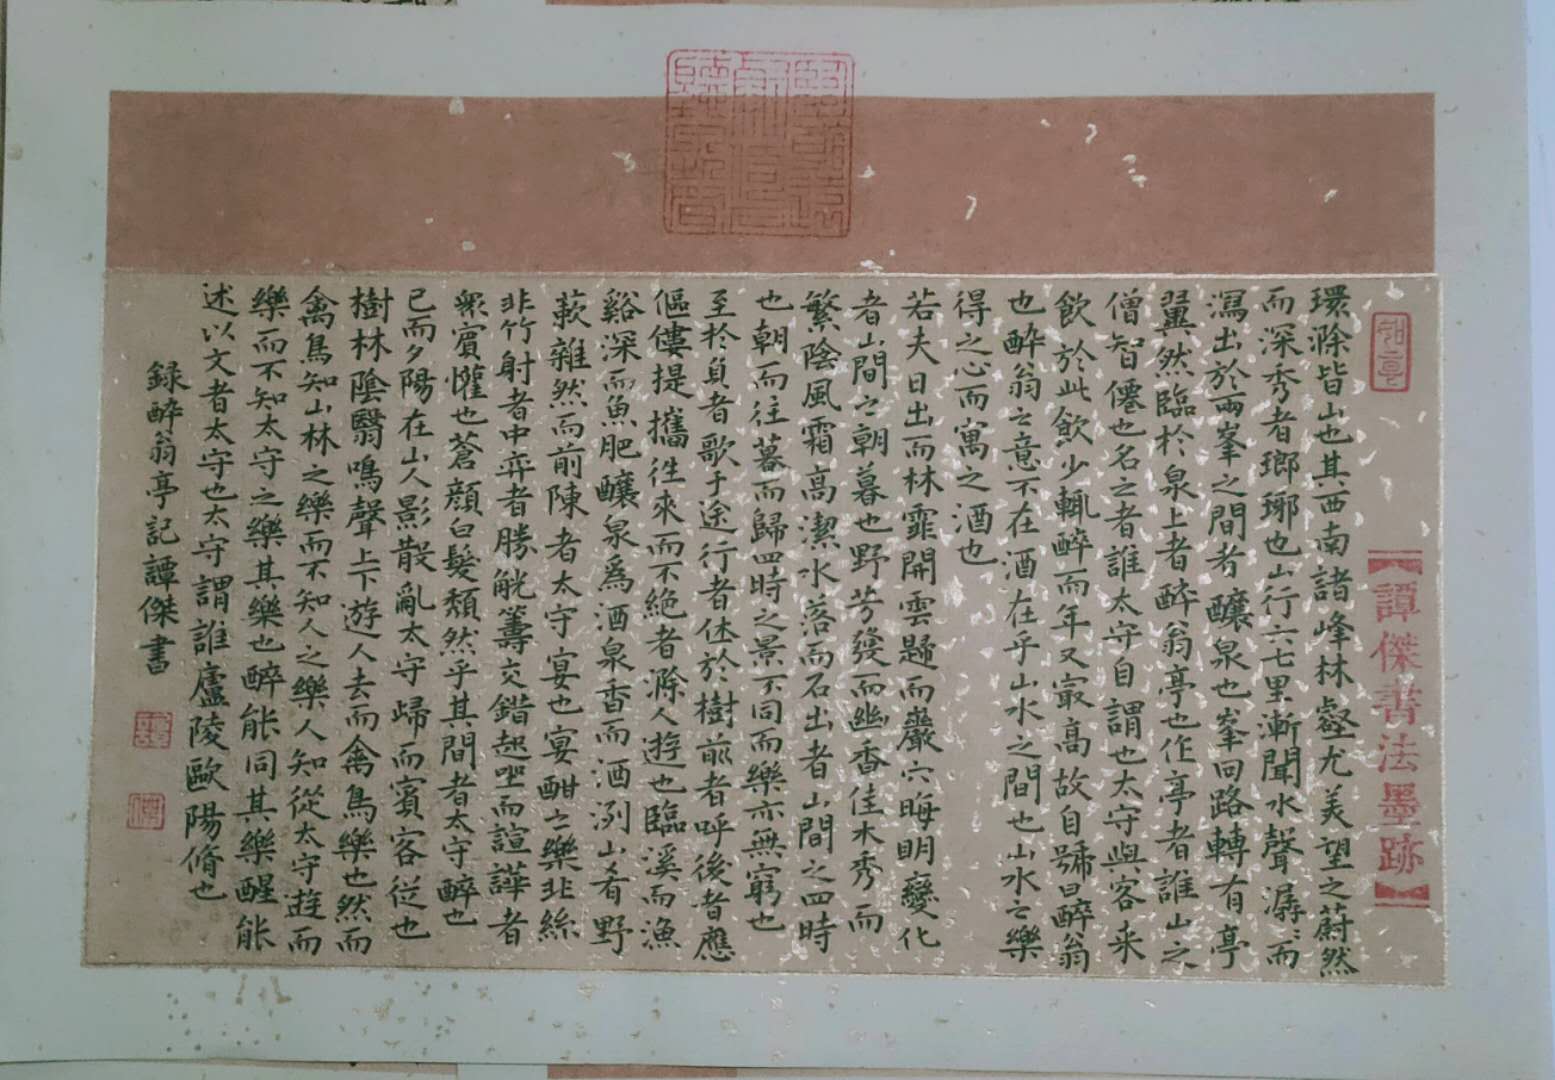 譚傑書法墨跡
環滁皆山也其西南諸峰林壑尤美望之蔚然
而深秀者瑯琊也山行六七里漸聞水聲潺〻而
瀉出於兩峯之間者釀泉也峯回路轉有亭
翼然臨於泉上者醉翁亭也作亭者誰山之
僧智僊也名之者誰太守自謂也太守與客来
飲於此飲少輒醉而年又最高故自號曰醉翁
也醉翁之意不在酒在乎山水之間也山水之樂
得之心而寓之酒也
若夫日出而林霏開雲歸而巖穴晦明變化
者山間之朝暮也野芳發而幽香佳木秀而
繁陰風霜高潔水落而石出者山間之四時
也朝而往暮而歸四時之景不同而樂亦無窮也
至於負者歌于途行者休於樹前者呼後者應
傴僂提攜往來而不絶者滁人遊也臨溪而漁
谿深而魚肥釀泉爲酒泉香而酒洌山肴野
蔌雜然而前陳者太守宴也宴酣之樂非絲
非竹射者中弈者勝觥籌交錯起坐而諠譁者
衆賓懽也蒼顔白髮頽然乎其間者太守醉也
已而夕陽在山人影散亂太守歸而賓客從也
樹林陰翳鳴聲上下遊人去而禽鳥樂也然而
禽鳥知山林之樂而不知人之樂人知從太守遊而
樂而不知太守之樂其樂也醉能同其樂醒能
述以文者太守也太守謂誰廬陵歐陽脩也
録醉翁亭記譚傑書